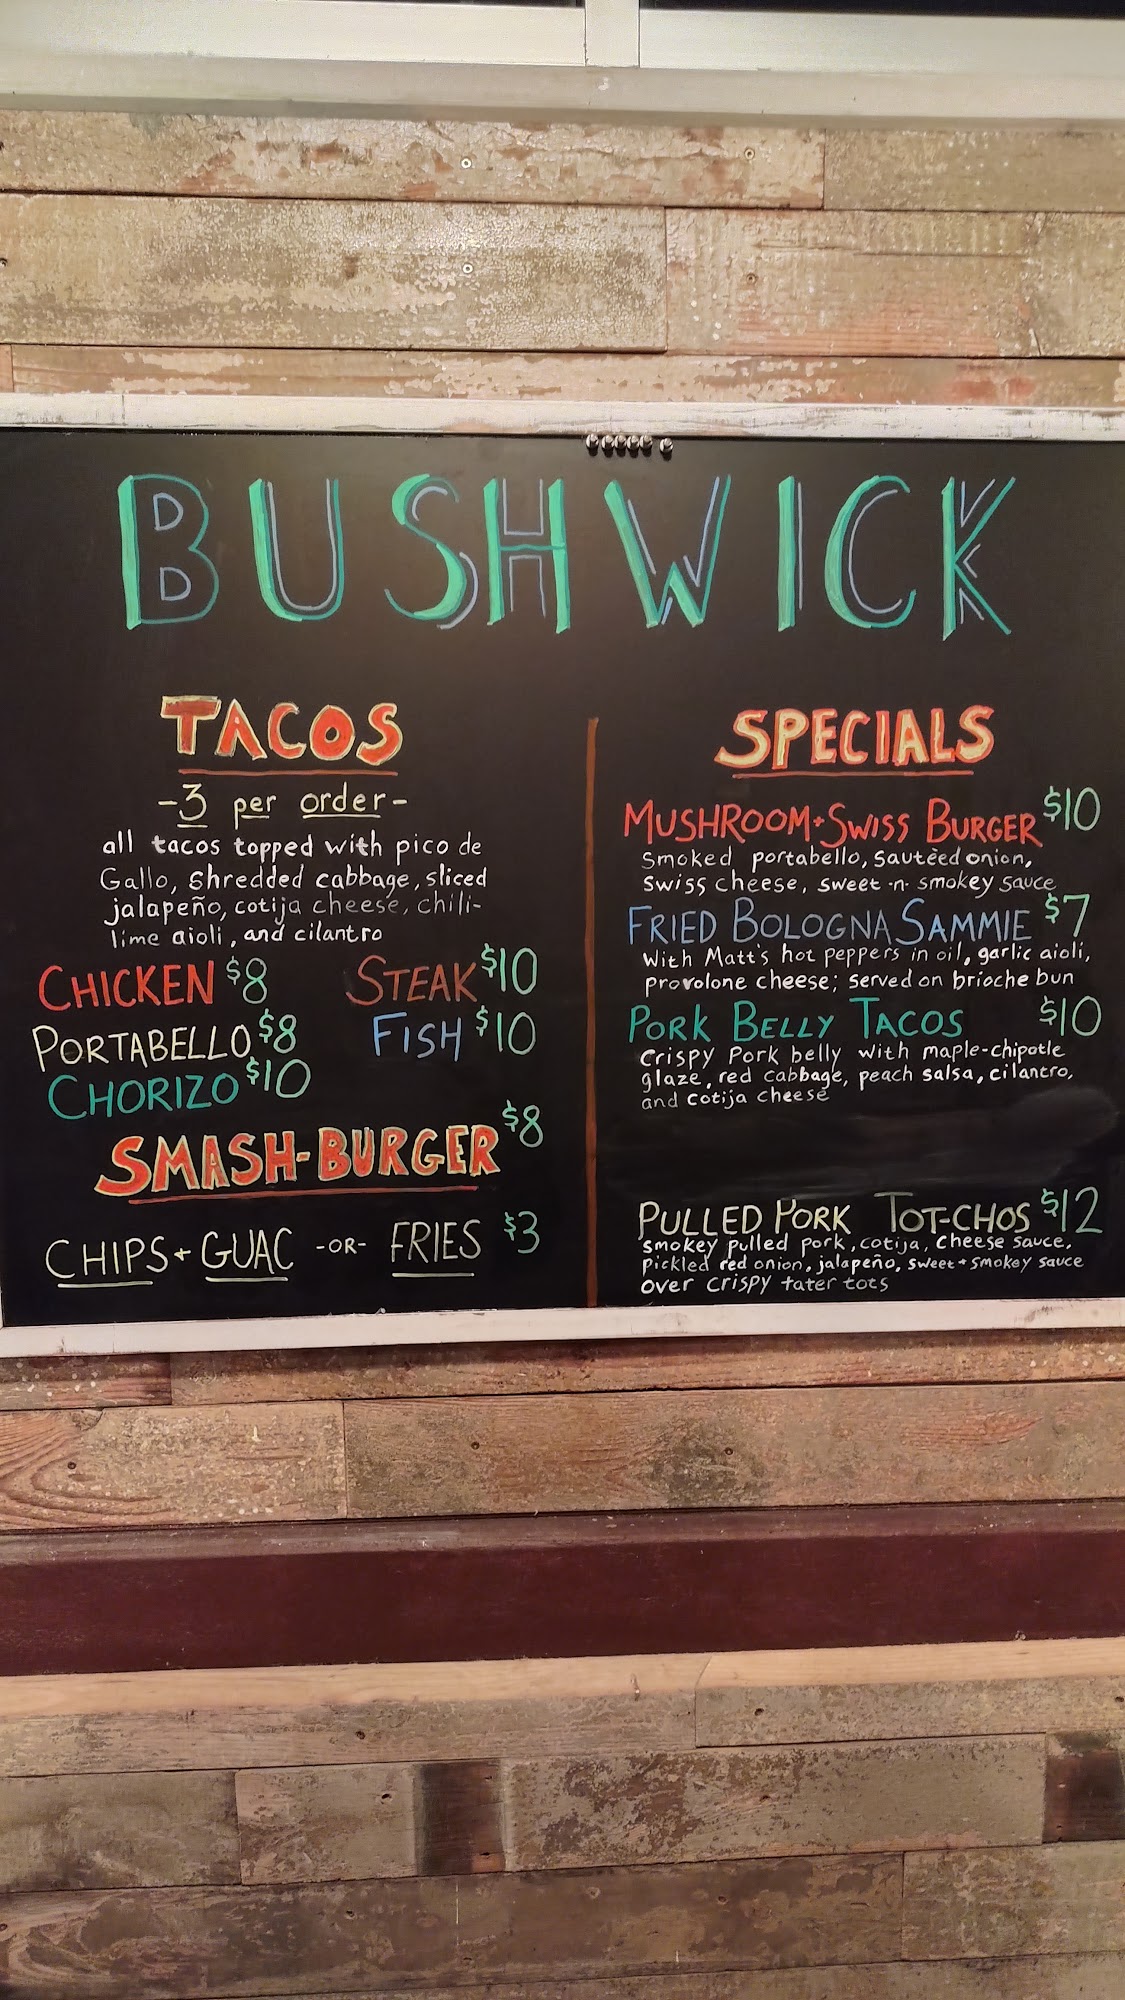 BUSHWICK
TACOS
-3 per order-
all tacos topped with pico de
Gallo, shredded cabbage, sliced
jalapeño, cotija cheese, chili-
lime aioli, and cilantro
CHICKEN $8 STEAK $10
PORTABELLO $8 FISH $10
CHORIZO $10
SMASH-BURGER $8
CHIPS + GUAC -OR- FRIES $3
SPECIALS
MUSHROOM + SWISS BURGER $10
Smoked portabello, sautèed onion,
swiss cheese, sweet -n- smokey sauce
FRIED BOLOGNA SAMMIE $7
With Matt's hot peppers in oil, garlic aioli,
provolone cheese; served on brioche bun
PORK BELLY TACOS $10
Crispy Pork belly with maple-chipotle
glaze, red cabbage, peach salsa, cilantro,
and cotija cheese
PULLED PORK TOT-CHOS $12
smokey pulled pork, cotija, cheese sauce,
Pickled red onion, jalapeño, sweet + smokey sauce
over crispy tater tots